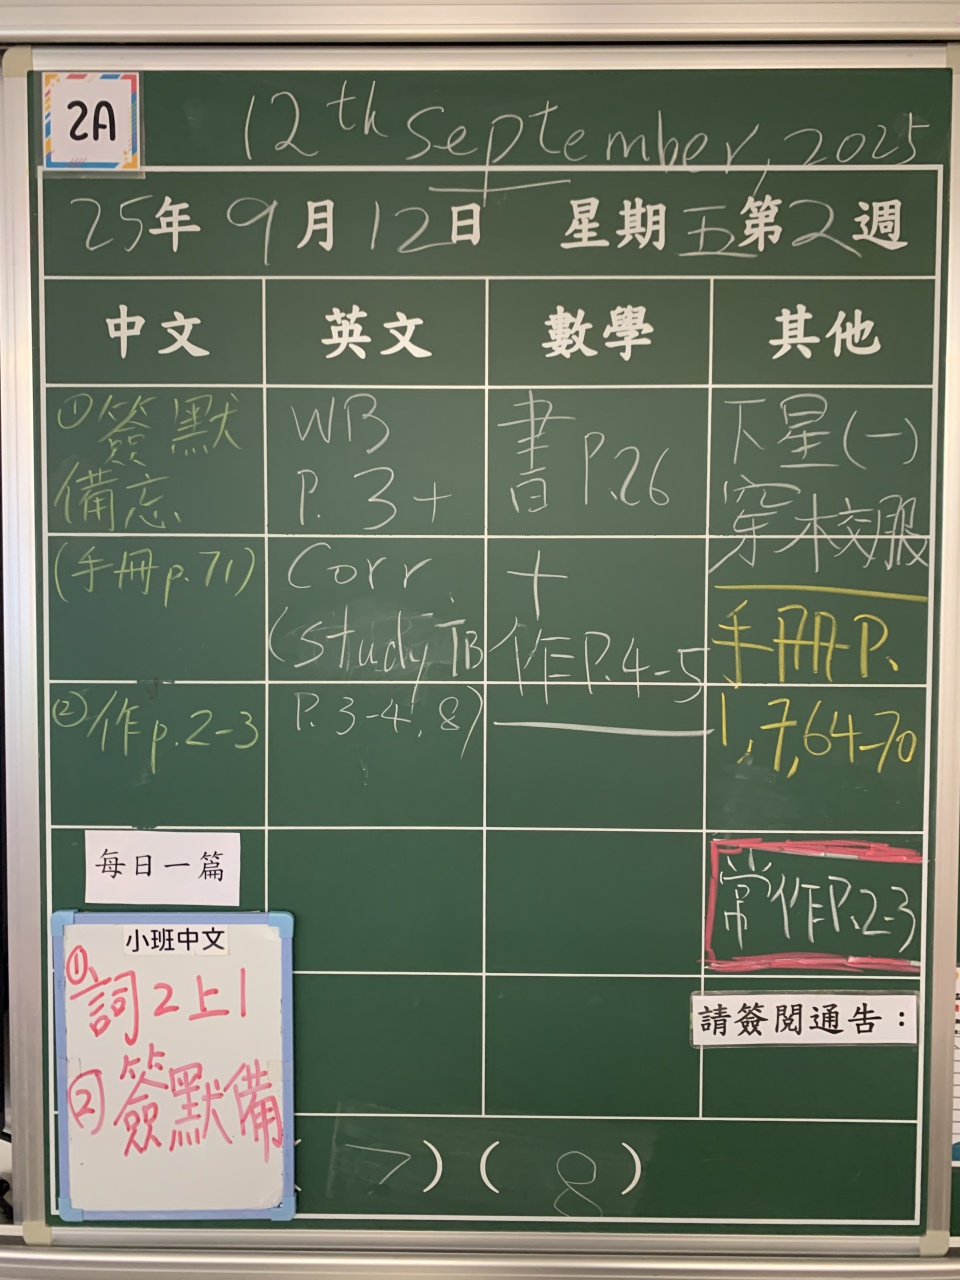 2A
12th September, 2025
25年 9月12日 星期五第2週
中文 英文 數學 其他
①簽默
備忘
(手冊p.71)
②作p.2-3
每日一篇
小班中文
①詞2上1
②簽默備
WB
P. 3+
Corr
(study TB
P. 3-4, 8)
書P.26
+
作P.4-5
下星(一)
穿校服
手冊P.
1,7,64-70
常作P.2-3
請簽閱通告：
7)(8)